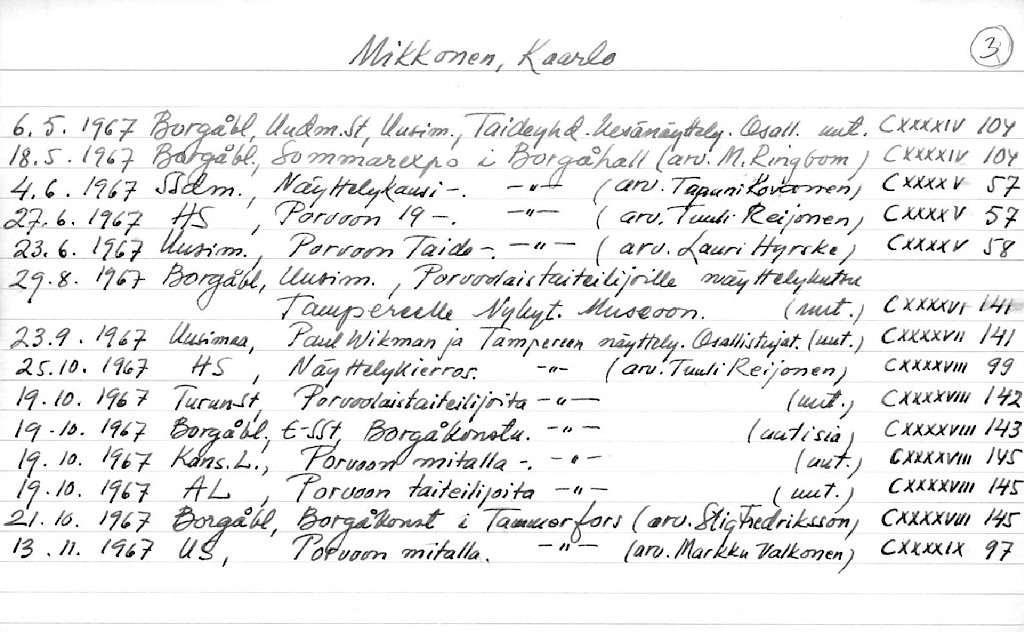 Mikkonen, Kaarlo
3
6.5. 1967 Borgåbl, Uudm.St, Uusim., Taideyhd. Kesänäyttely. Osall. uut. CXXXXIV 104
18.5. 1967 Borgåbl., Sommarexpo i Borgåhall (arv. M. Ringbom) CXXXXIV 104
4.6. 1967 SSdm., Näyttelykausi-. -"- (arv. Tapani Kovanen) CXXXXV 57
27.6. 1967 HS, Porvoon 19-. -"- (arv. Tuuli Reijonen) CXXXXV 57
23.6. 1967 Uusim., Porvoon Taide-. -"- (arv. Lauri Hyrske) CXXXXV 58
29.8. 1967 Borgåbl, Uusim., Porvoolaistaiteilijoille näyttelykutsu
Tampereelle Nykyt. Museoon. (uut.) CXXXXVI 141
23.9. 1967 Uusimaa, Paul Wikman ja Tampereen näyttely. Osallistujat. (uut.) CXXXXVII 141
25.10. 1967 HS, Näyttelykierros. -"- (arv. Tuuli Reijonen) CXXXXVIII 99
19.10. 1967 TurunSt, Porvoolaistaiteilijoita -"- (uut.) CXXXXVIII 142
19.10. 1967 Borgåbl., E-SSt, Borgåkonstn. -"- (uutisia) CXXXXVIII 143
19.10. 1967 Kans.L., Porvoon mitalla -. -"- (uut.) CXXXXVIII 145
19.10. 1967 AL, Porvoon taiteilijoita -"- (uut.) CXXXXVIII 145
21.10. 1967 Borgåbl, Borgåkonst i Tammerfors (arv. Stig Fredriksson) CXXXXVIII 145
13.11. 1967 US, Porvoon mitalla. -"- (arv. Markku Valkonen) CXXXXIX 97